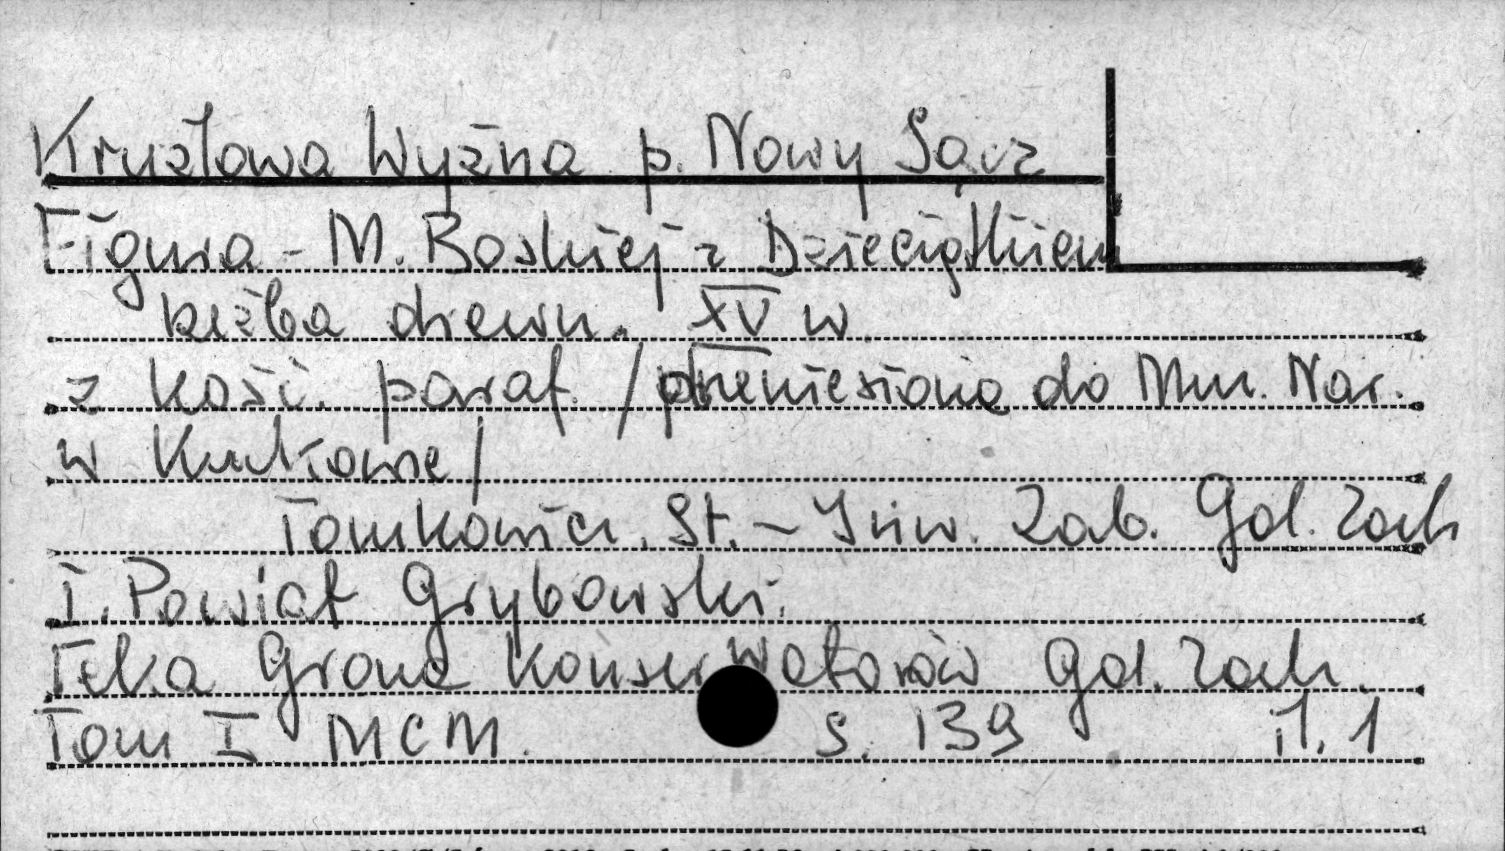 Krużlowa Wyżna p. Nowy Sącz
Figura - M. Boskiej z Dzieciątkiem
rzeźba drewn. XV w
z kośc. paraf. / przeniesiona do Muz. Nar.
w Krakowie /
Tomkowicz. St. - Inw. Zab. Gal. Zach
I. Powiat Grybowski.
Teka Grona Konserwatorów Gal. Zach.
Tom I MCM. s. 139 il. 1